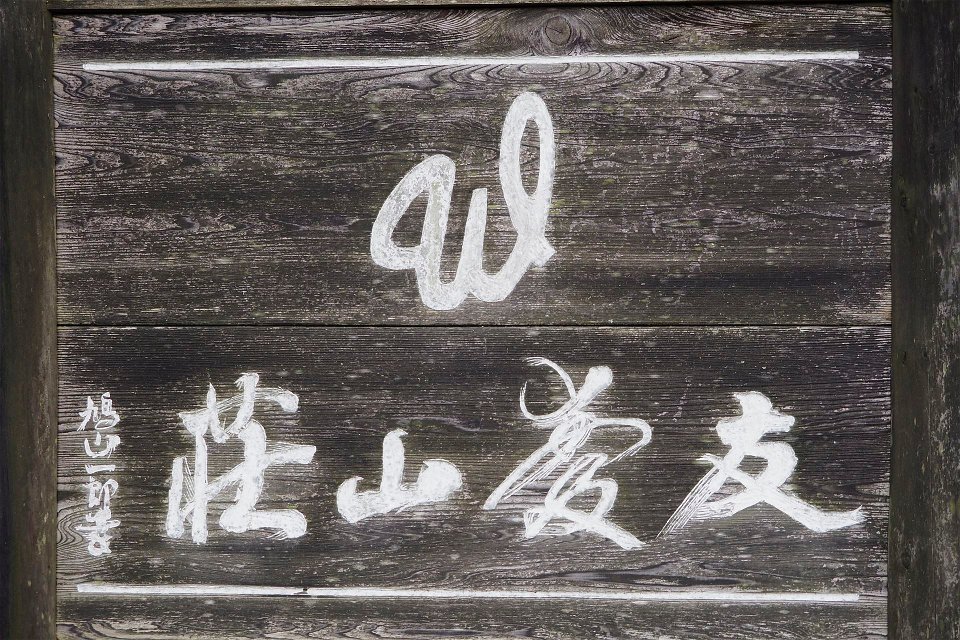 友愛山荘
鳩山一郎書